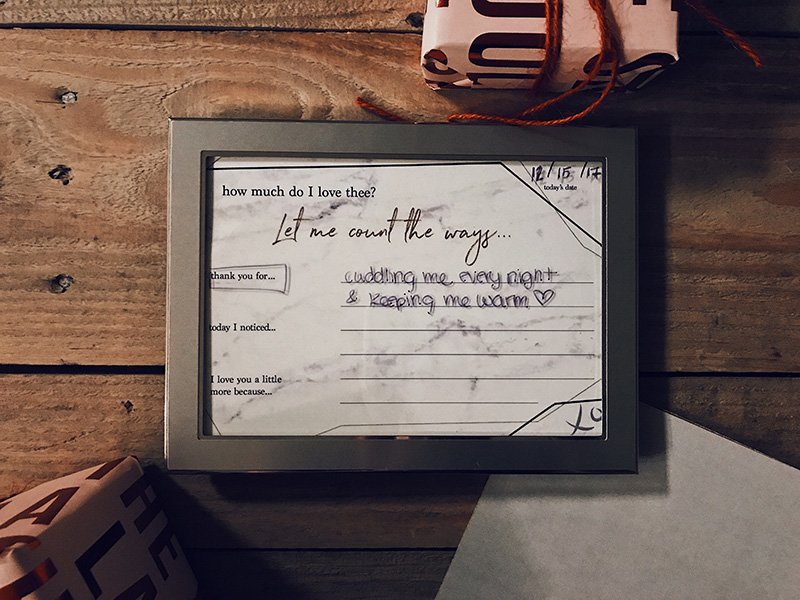 12/15/17
today's date
how much do I love thee?
Let me count the ways...
thank you for...
cuddling me every night
& keeping me warm ♡
today I noticed...
I love you a little
more because...
XO